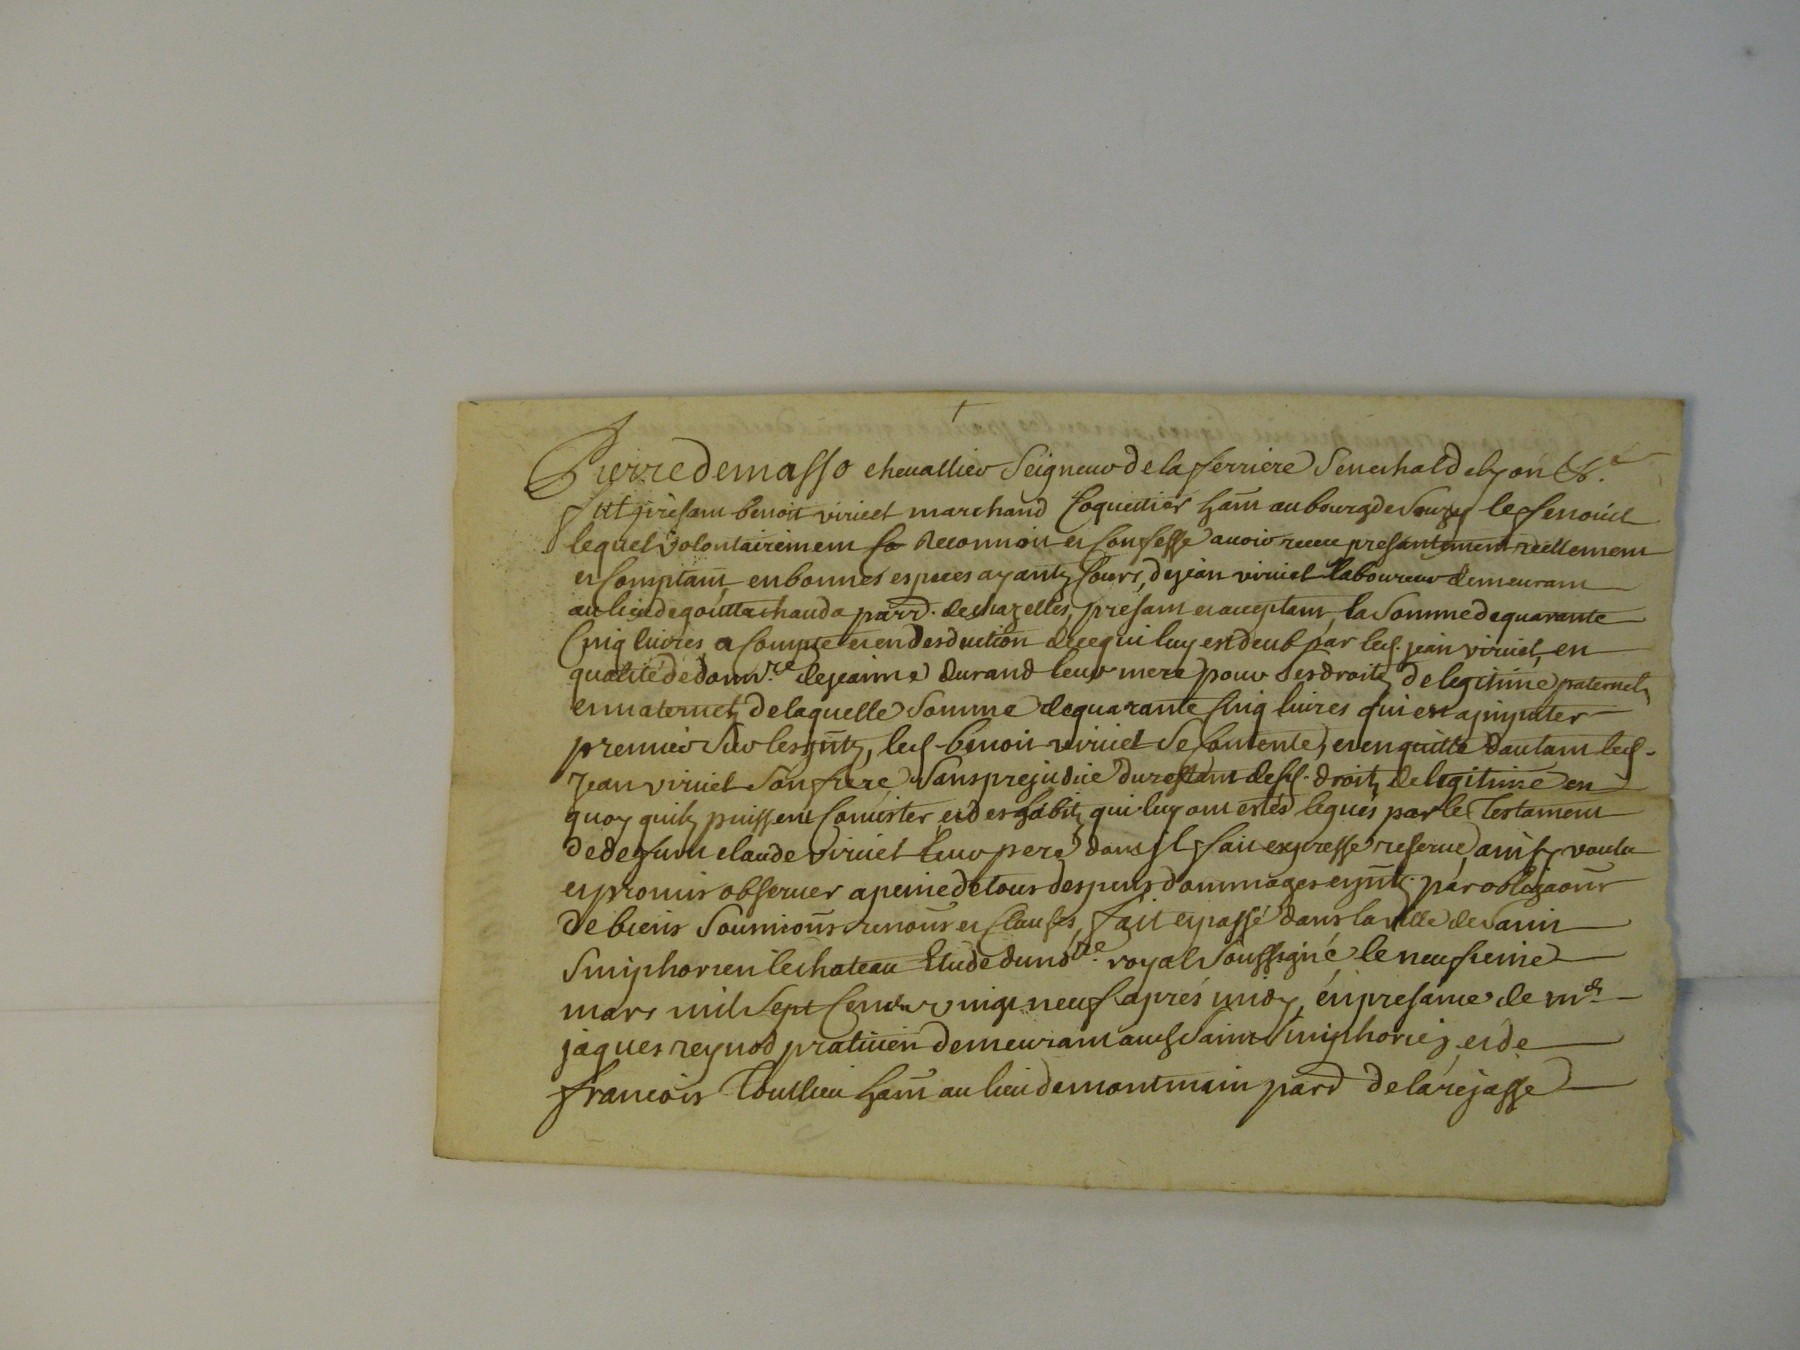 Pierre de masso chevallier Seigneur de la ferriere Senechal de lyon &c.
fut présant benoit viricel marchand Coquettier hant au bourg de Souzy
lequel volontairement reconnoit et Confesse avoir receu présantement réellement
et Comptant en bonnes especes ayantz Cours, de jean viricel laboureur demeurant
au lieu de goutta chauda parr. de chazelles, présant et acceptant, la Somme de quarante
Cinq livres, a Compte et en desduction de ce qui luy est deub par led. jean viricel, en
qualité de donnre. de jeanne durand leur mere pour ses droitz de legitime paternelz
et maternelz de laquelle Somme de quarante Cinq livres qui est a jmputer
premier Sur les jntz, led. benoit viricel Se Contente, et en quitte d'autant led.
Jean viricel Son frere, Sans prejudice du restant desd. droitz de legitime en
quoy quilz puissent Consister, et des habitz qui luy ont estés legués par le Testament
de deffunt claude viricel leur pere, dont jl fait expresse reserve, ainsy voulu
et promis observer a peine de tous despens dommages et jntz. par obligaons
de biens Soumions renons et Clauses, fait et passé dans la ville de Saint
Simphorien le chateau Etude du nore. royal Soussigné, le neufieme
mars mil Sept Cent vingt neuf aprés midy, én présance de me
jaques reynod praticien demeurant aud. Saint Simphorien, et de
francois Toullieu hant au lieu de montmain parr de larejasse